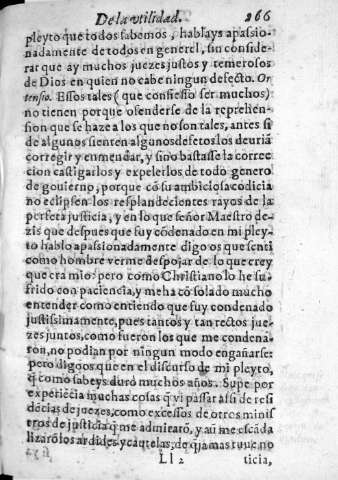 De la vtilidad. 266
pleyto que todos sabemos, hablays apassio-
nadamente de todos en generel, sin conside-
rar que ay muchos juezes justos y temerosos
de Dios en quien no cabe ningun defecto. Or
tensio. Essos tales (que confiesso ser muchos)
no tienen porque ofenderse de la reprehen-
sion que se haze a los que no son tales, antes si
de algunos sienten algunos defetos los deuriã
corregir y enmendar, y sino bastasse la correc
cion castigarlos y expelerlos de todo genero
de gouierno, porque cõ su ambiciosa codicia
no eclipsen los resplandecientes rayos de la
perfeta justicia, y en lo que señor Maestro de-
zis que despues que fuy cõdenado en mi pley-
to hablo apassionadamente digo os que senti
como hombre verme despojar de lo que crey
que era mio: pero como Christiano lo he su-
frido con paciencia, y me ha cõsolado mucho
entender como entiendo que fuy condenado
justissimamente, pues tantos y tan rectos jue-
zes juntos, como fueron los que me condena-
ron, no podian por ningun modo engañarse:
pero digo os que en el discurso de mi pleyto,
q̃ como sabeys duro muchos años. Supe por
experiẽcia muchas cosas q̃ vi passar assi de resi
dẽcias de juezes, como excessos de otros minis
tros de justicia q̃ me admirarõ, y aũ me escãda
lizarõ los ardides y cautelas, de q̃ jamas tuue no
Ll 2 ticia,